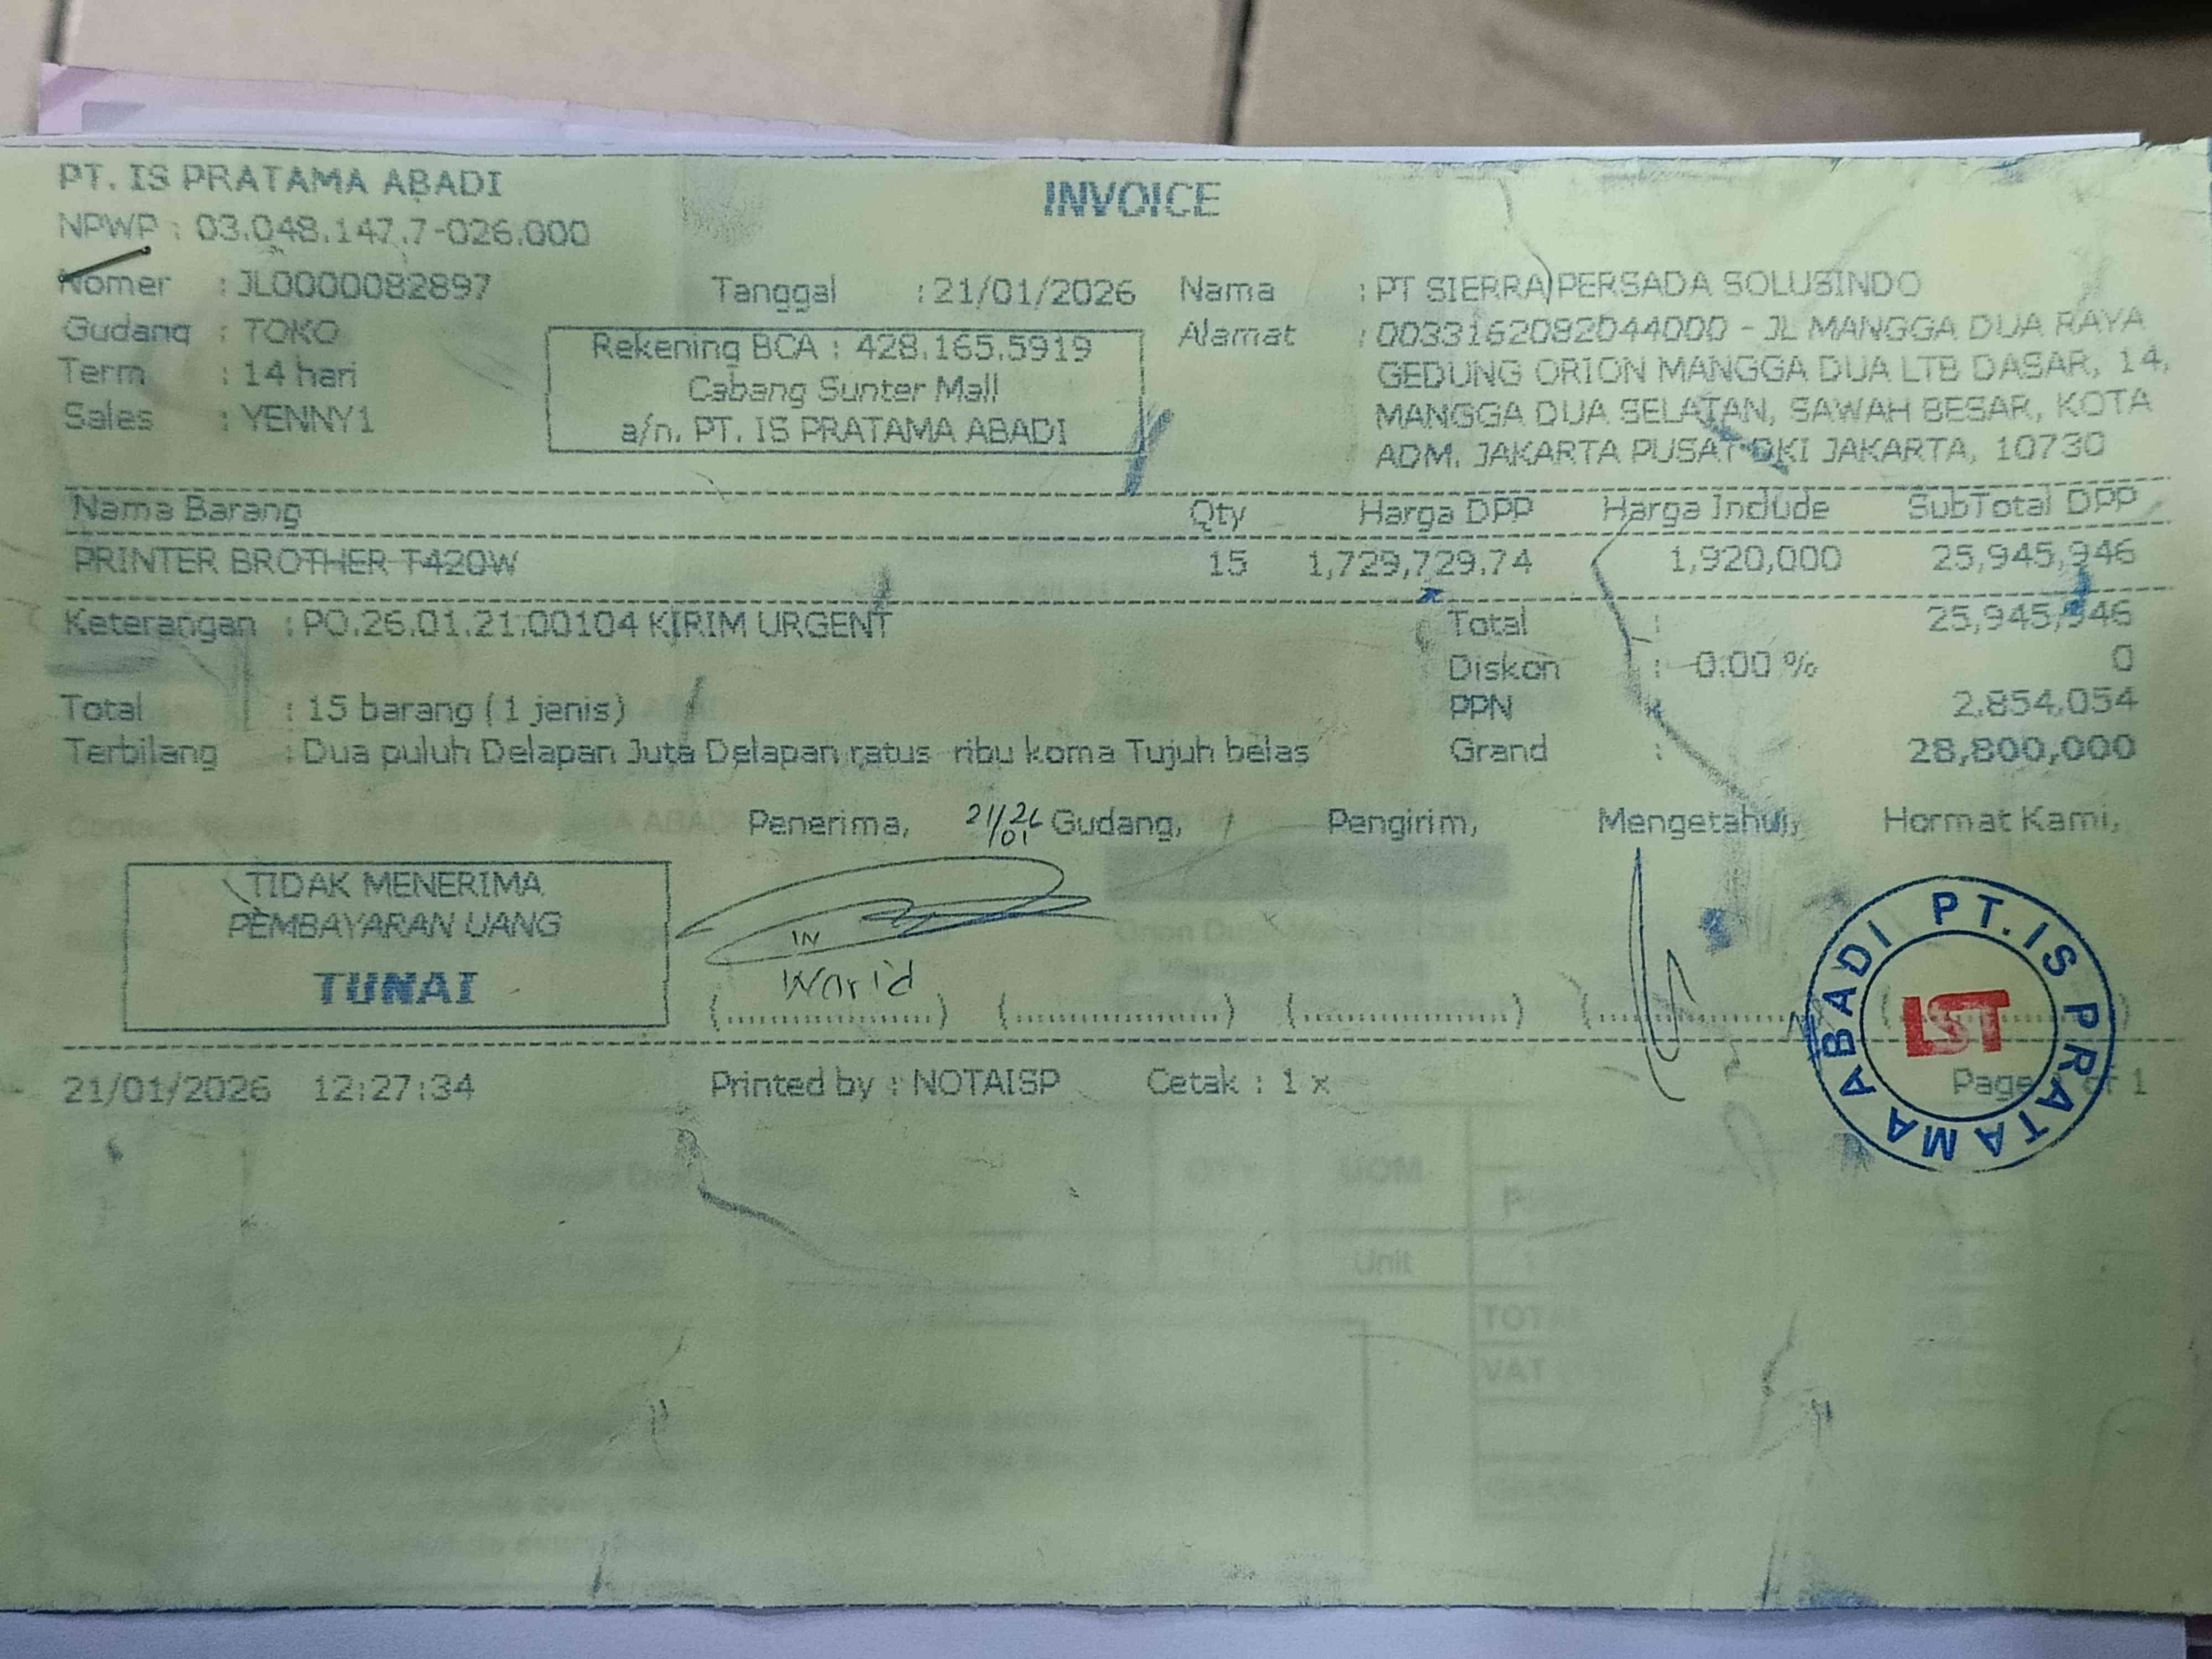 PT. IS PRATAMA ABADI
INVOICE
NPWP : 03.048.147.7-026.000
Nomer : JL0000082897
Tanggal : 21/01/2026
Nama : PT SIERRA PERSADA SOLUSINDO
Gudang : TOKO
Term : 14 hari
Sales : YENNY1
Rekening BCA : 428.165.5919
Cabang Sunter Mall
a/n. PT. IS PRATAMA ABADI
Alamat : 0033162082044000 - JL MANGGA DUA RAYA
GEDUNG ORION MANGGA DUA LTB DASAR, 14,
MANGGA DUA SELATAN, SAWAH BESAR, KOTA
ADM. JAKARTA PUSAT DKI JAKARTA, 10730
Nama Barang Qty Harga DPP Harga Include SubTotal DPP
PRINTER BROTHER T420W 15 1,729,729.74 1,920,000 25,945,946
Keterangan : PO.26.01.21.00104 KIRIM URGENT
Total : 25,945,946
Diskon : 0.00 % 0
Total : 15 barang ( 1 jenis)
PPN 2,854,054
Terbilang : Dua puluh Delapan Juta Delapan ratus ribu koma Tujuh belas
Grand : 28,800,000
Penerima, 21/26 /01 Gudang, Pengirim, Mengetahui, Hormat Kami,
TIDAK MENERIMA
PEMBAYARAN UANG
TUNAI
Warid
(..................) (..................) (..................) (..................)
PT. IS PRATAMA ABADI
IST
21/01/2026 12:27:34 Printed by : NOTAISP Cetak : 1 x Page of 1
UOM
Unit
VAT